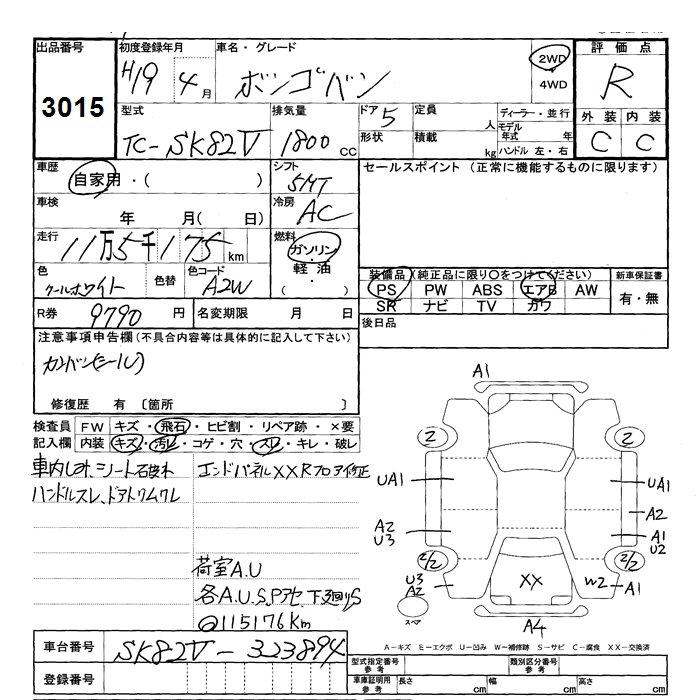 出品番号 初度登録年月 車名・グレード 評価点
3015 H19 4月 ボンゴバン 2WD R
4WD
型式 排気量 ドア 5 定員 人 ディーラー・並行 外装 内装
TC-SK82V 1800 CC 形状 積載 kg モデル年式 年 C C
ハンドル 左・右
車歴 シフト セールスポイント (正常に機能するものに限ります)
自家用・( ) 5MT
車検 冷房
年 月( 日) AC
走行 燃料
11万5千175 km ガソリン
色 色替 色コード 軽油 装備品(純正品に限り○をつけてください) 新車保証書
クールホワイト A2W ( ・ ) PS PW ABS エアB AW 有・無
SR ナビ TV カワ
R券 9790 円 名変期限 月 日 後日品
注意事項申告欄(不具合内容等は具体的に記入して下さい)
カンバン(シール)
修復歴 有 〔箇所 〕
検査員 FW キズ・飛石・ヒビ割・リペア跡・×要
記入欄 内装 キズ・汚レ・コゲ・穴・スレ・キレ・破レ
エンドパネルXX Rフロア修正
ハンドルスレ、
荷室A.U
各A.U.S,Pアセ,下廻りS
@115176Km
車台番号 SK82V-323894
登録番号
A1
2 2
UA1 UA1
A2
A2 A1
U3 U2
2/2 2/2
U3
A2 XX W2 A1
スペア
A4
A-キズ E-エクボ U-凹み W-補修跡 S-サビ C-腐食 XX-交換済
型式指定番号 参考 類別区分番号 参考
車庫証明用 参考 長さ cm 幅 cm 高さ cm